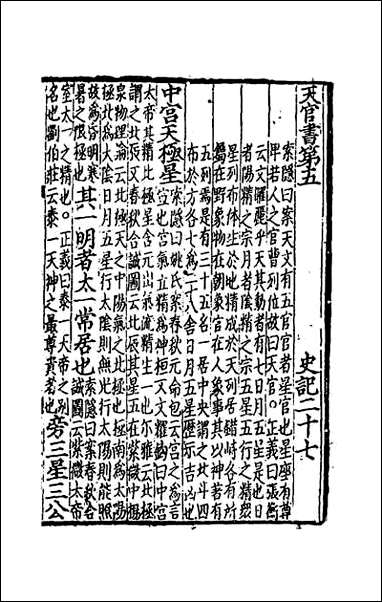 天官書第五　史記二十七
索隱曰案天文有五官官者星官也星座有尊
卑若人之官曹列位故曰天官。正義曰張衡
云文曜麗乎天其動者有七日月五星是也日
者陽精之宗月者陰精之宗五星五行之精衆
星列布體生於地精成於天列居錯峙各有所
屬在野象物在朝象官在人象事其以神著有
五列焉是有三十五名一居中央謂之北斗四
布於方各七爲二十八舍日月五星歷示吉凶也
中宮天極星
索隱曰姚氏案春秋元命包云宮之爲言
宣也宮氣立精爲神桓又文耀鉤曰中宮
太帝其精北極星含元出氣流精生一也尔雅云北極
謂之北辰又春秋合誠圖云北辰其星五在紫微中楊
泉物理論云北極天之中陽氣之北極也極南爲太陽
極北爲太陰日月五星行太陰則無光行太陽則能照
故爲昏明寒
暑之限極也
其一明者太一常居也
索隱曰案春秋合
誠圖云紫微太帝
室太一之精也。正義曰泰一天帝之别
名也劉伯莊云泰一天神之最尊貴者也
旁三星三公